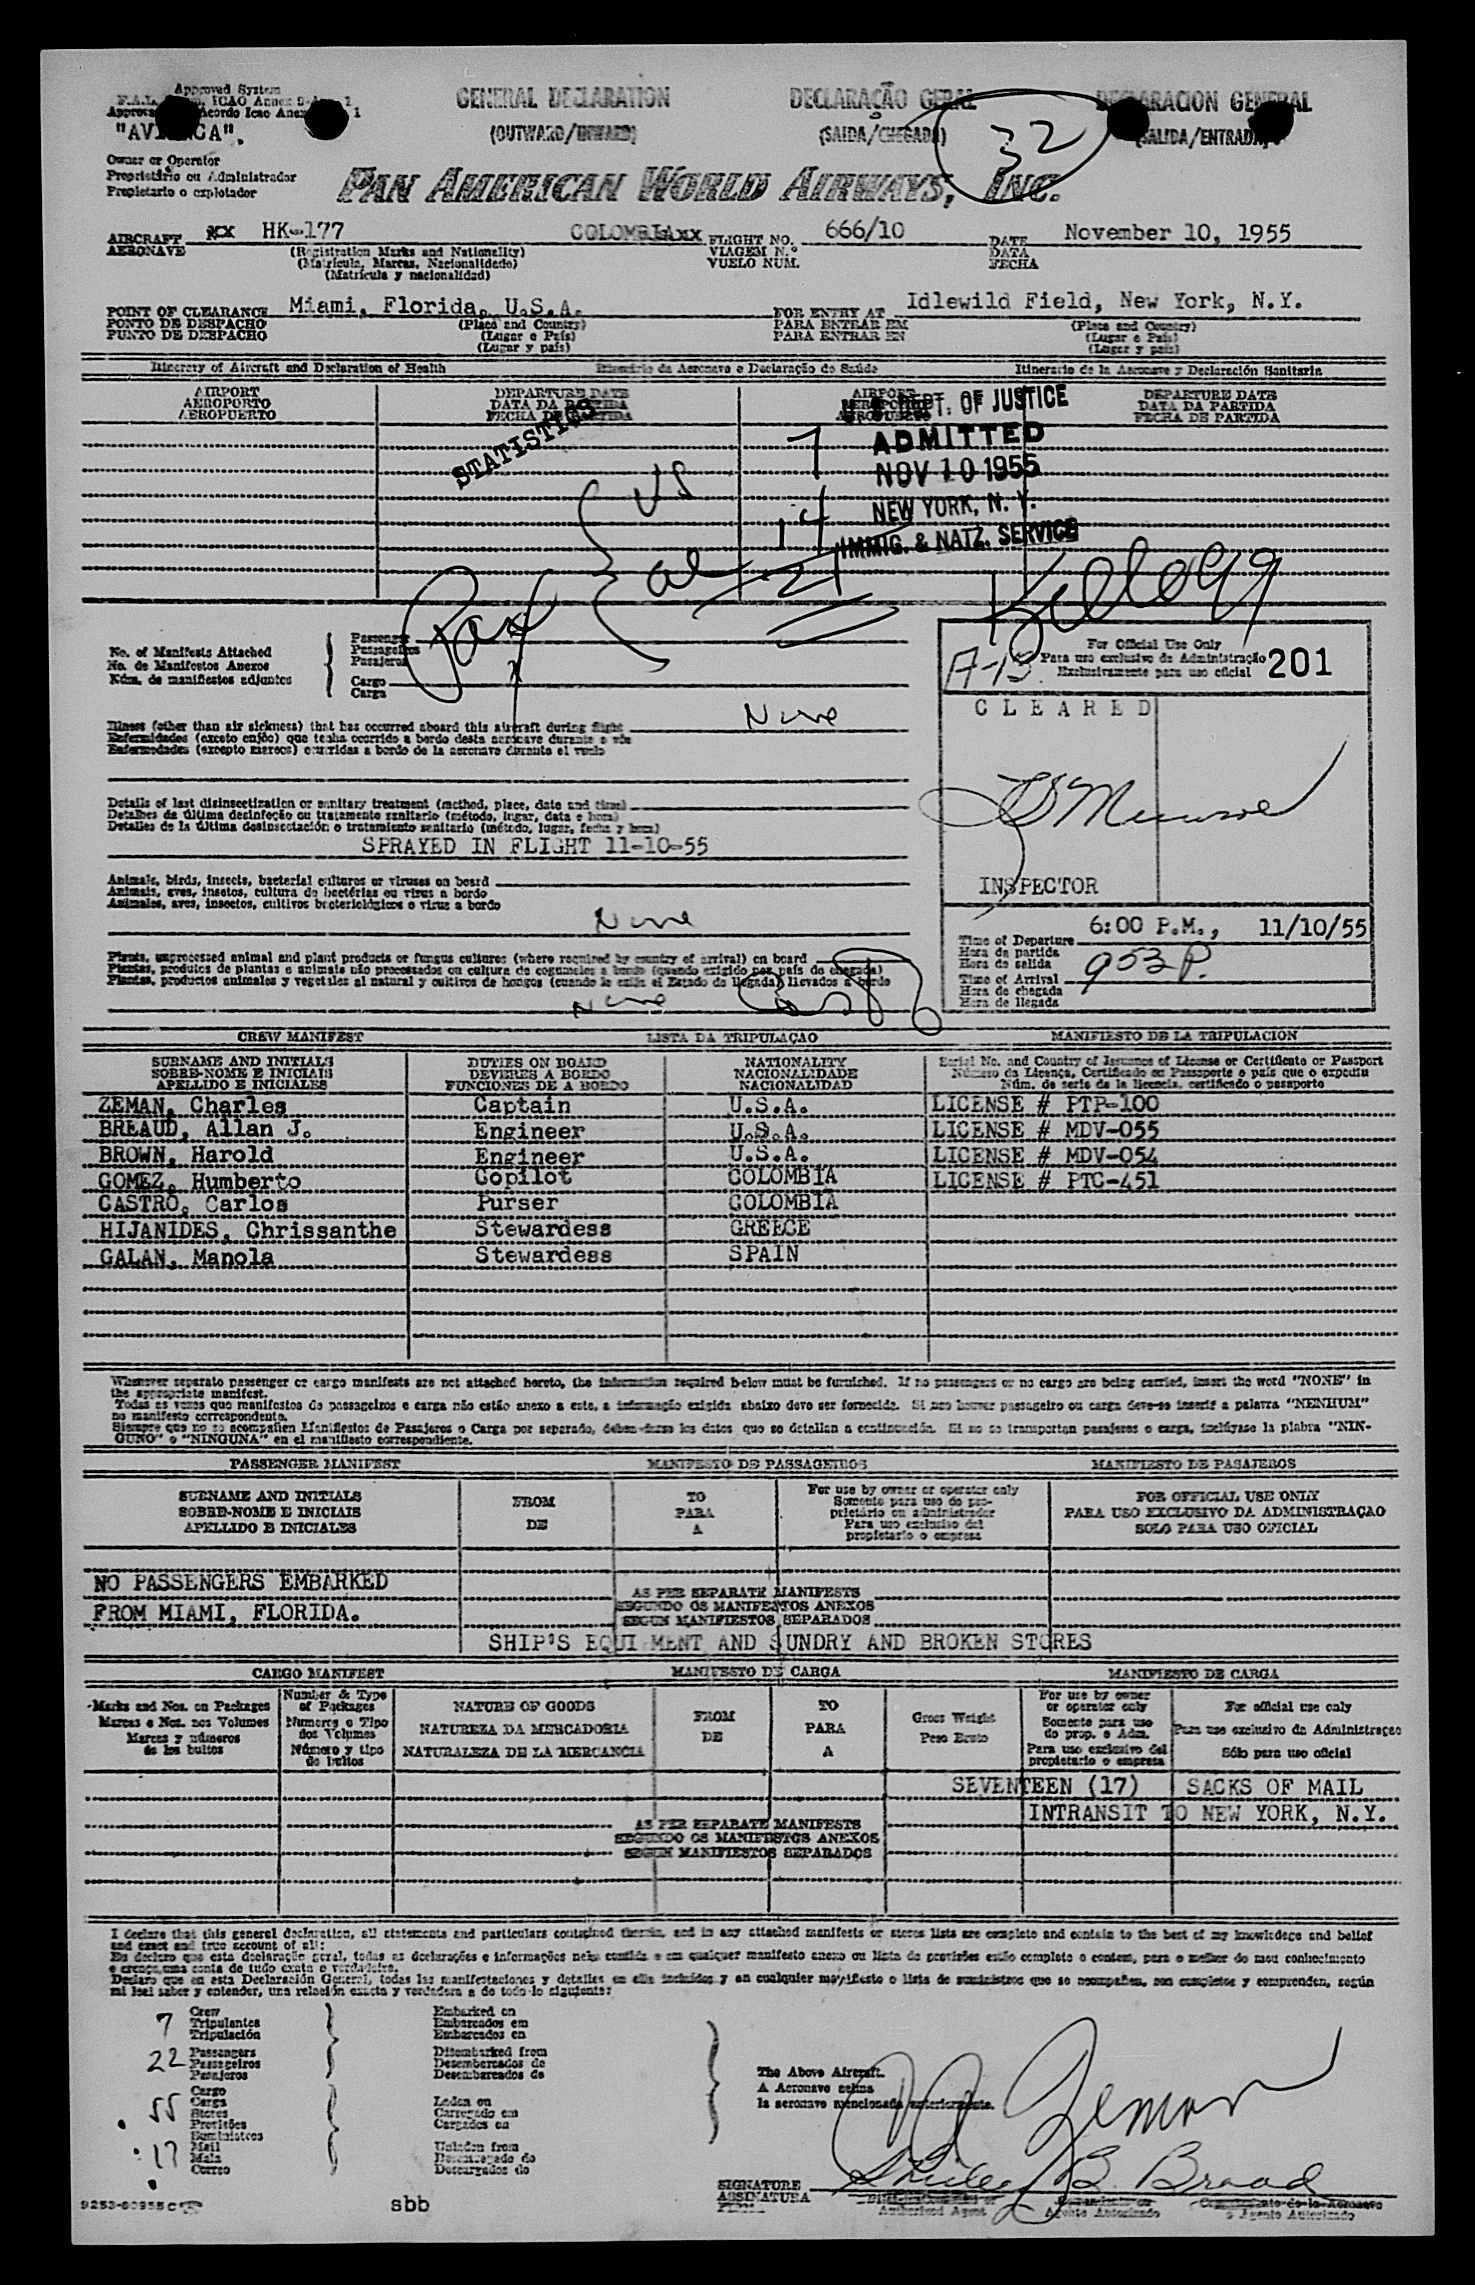 Approved System
"AVIANCA".
GENERAL DECLARATION
(OUTWARD/INWARD)
DECLARAÇÃO GERAL
(SAIDA/CHEGADA)
DECLARACION GENERAL
(SALIDA/ENTRADA)
32
Owner or Operator
Proprietário ou Administrador
Propietario o explotador
PAN AMERICAN WORLD AIRWAYS, INC.
AIRCRAFT xx HK-177 COLOMBIAxx FLIGHT NO. 666/10 DATE November 10, 1955
AERONAVE (Registration Marks and Nationality) VIAGEM N.º DATA
(Matricula, Marcas, Nacionalidade) VUELO NUM. FECHA
(Matricula y nacionalidad)
POINT OF CLEARANCE Miami, Florida, U.S.A. FOR ENTRY AT Idlewild Field, New York, N.Y.
PONTO DE DESPACHO (Place and Country) PARA ENTRAR EM (Place and Country)
PUNTO DE DESPACHO (Lugar e País) PARA ENTRAR EN (Lugar e País)
(Lugar y país) (Lugar y país)
Itinerary of Aircraft and Declaration of Health Itinerário da Aeronave e Declaração de Saúde Itinerario de la Aeronave y Declaración Sanitaria
AIRPORT DEPARTURE DATE AIRPORT DEPARTURE DATE
AEROPORTO DATA DA PARTIDA AEROPORTO DATA DA PARTIDA
AEROPUERTO FECHA DE PARTIDA AEROPUERTO FECHA DE PARTIDA
STATISTICS
U. S. DEPT. OF JUSTICE
ADMITTED
NOV 10 1955
NEW YORK, N. Y.
IMMIG. & NATZ. SERVICE
7
US
14
al
21
Pax
Kellogg
No. of Manifests Attached
No. de Manifestos Anexos
Núm. de manifiestos adjuntos
Passenger
Passageiros
Pasajeros
Cargo
Carga
For Official Use Only
Para uso exclusivo de Administração
Exclusivamente para uso oficial
A-13 201
CLEARED
INSPECTOR
Illness (other than air sickness) that has occurred aboard this aircraft during flight None
Enfermidades (exceto enjôo) que tenha ocorrido a bordo desta aeronave durante o vôo
Enfermedades (excepto mareos) ocurridas a bordo de la aeronave durante el vuelo
Details of last disinsectization or sanitary treatment (method, place, date and time)
Detalhes da última desinfeção ou tratamento sanitario (método, lugar, data e hora)
Detalles de la última desinsectación o tratamiento sanitario (método, lugar, fecha y hora)
SPRAYED IN FLIGHT 11-10-55
Animals, birds, insects, bacterial cultures or viruses on board
Animais, aves, insetos, cultura de bactérias ou virus a bordo
Animales, aves, insectos, cultivos bacteriológicos o virus a bordo
None
Plants, unprocessed animal and plant products or fungus cultures (where required by country of arrival) on board
Plantas, produtos de plantas e animais não processados ou cultura de cogumelos a bordo (quando exigido por país de chegada)
Plantas, productos animales y vegetales al natural y cultivos de hongos (cuando lo exija el Estado de llegada) llevados a bordo
None
6:00 P.M., 11/10/55
Time of Departure
Hora da partida
Hora de salida
953 P.
Time of Arrival
Hora de chegada
Hora de llegada
CREW MANIFEST LISTA DA TRIPULAÇAO MANIFIESTO DE LA TRIPULACION
SURNAME AND INITIALS DUTIES ON BOARD NATIONALITY Serial No. and Country of Issuance of License or Certificate or Passport
SOBRE-NOME E INICIAIS DEVERES A BORDO NACIONALIDADE Número da Licença, Certificado ou Passaporte e país que o expediu
APELLIDO E INICIALES FUNCIONES DE A BORDO NACIONALIDAD Núm. de serie de la licencia, certificado o pasaporte
ZEMAN, Charles Captain U.S.A. LICENSE # PTP-100
BREAUD, Allan J. Engineer U.S.A. LICENSE # MDV-055
BROWN, Harold Engineer U.S.A. LICENSE # MDV-054
GOMEZ, Humberto Copilot COLOMBIA LICENSE # PTC-451
CASTRO, Carlos Purser COLOMBIA
HIJANIDES, Chrissanthe Stewardess GREECE
GALAN, Manola Stewardess SPAIN
Whenever separate passenger or cargo manifests are not attached hereto, the information required below must be furnished. If no passengers or no cargo are being carried, insert the word "NONE" in
the appropriate manifest.
Todas as vezes que manifestos de passageiros e carga não estão anexo a este, a informação exigida abaixo deve ser fornecida. Si não houver passageiro ou carga deve-se inserir a palavra "NENHUM"
no manifesto correspondente.
Siempre que no se acompañen Manifiestos de Pasajeros o Carga por separado, deben darse los datos que se detallan a continuación. Si no se transportan pasajeros o carga, inclúyase la plabra "NIN-
GUNO" o "NINGUNA" en el manifiesto correspondiente.
PASSENGER MANIFEST MANIFESTO DE PASSAGEIROS MANIFIESTO DE PASAJEROS
SURNAME AND INITIALS FROM TO For use by owner or operator only FOR OFFICIAL USE ONLY
SOBRE-NOME E INICIAIS DE PARA Somente para uso do pro- PARA USO EXCLUSIVO DA ADMINISTRAÇAO
APELLIDO E INICIALES A prietário ou administrador SOLO PARA USO OFICIAL
Para uso exclusivo del
propietario o empresa
NO PASSENGERS EMBARKED
FROM MIAMI, FLORIDA.
AS PER SEPARATE MANIFESTS
SEGUNDO OS MANIFESTOS ANEXOS
SEGUN MANIFIESTOS SEPARADOS
SHIP'S EQUI MENT AND SUNDRY AND BROKEN STORES
CARGO MANIFEST MANIFESTO DE CARGA MANIFIESTO DE CARGA
Marks and Nos. on Packages Number & Type of Packages NATURE OF GOODS FROM TO Gross Weight For use by owner or operator only For official use only
Marcas e Nos. nos Volumes Numeros e Tipo dos Volumes NATUREZA DA MERCADORIA DE PARA Peso Bruto Somente para uso do prop. e Adm. Para uso exclusivo da Administraçao
Marcas y números de los bultos Número y tipo de bultos NATURALEZA DE LA MERCANCIA A Para uso exclusivo del propietario o empresa Sólo para uso oficial
SEVENTEEN (17) SACKS OF MAIL
INTRANSIT TO NEW YORK, N.Y.
AS PER SEPARATE MANIFESTS
SEGUNDO OS MANIFESTOS ANEXOS
SEGUN MANIFIESTOS SEPARADOS
I declare that this general declaration, all statements and particulars contained therein, and in any attached manifests or stores lists are complete and contain to the best of my knowledge and belief
and exact and true account of all:
Eu declaro que esta declaração geral, todas as declarações e informações nela contida e em qualquer manifesto anexo ou lista de provisões estão completo e contem, para o melhor do meu conhecimento
e crença,uma conta de tudo exata e verdadeira.
Declaro que en esta Declaración General, todas las manifestaciones y detalles en ella incluidos y en cualquier manifiesto o lista de suministros que se acompañen, son completos y comprenden, según
mi leal saber y entender, una relación exacta y verdadera a de todo lo siguiente:
7 Crew
Tripulantes
Tripulación
Embarked on
Embarcados em
Embarcados en
22 Passengers
Passageiros
Pasajeros
Disembarked from
Desembarcados de
Desembarcados de
55 Cargo
Carga
Stores
Provisões
Suministros
Laden on
Carregado em
Cargados en
17 Mail
Mala
Correo
Unladen from
Descarregado do
Descargados de
The Above Aircraft.
A Aeronave acima
la aeronave mencionada anteriormente.
Zeman
Shirley B. Broad
SIGNATURE
ASSINATURA
FIRMA
Authorized Agent Agente Autorizado o Agente Autorizado
sbb